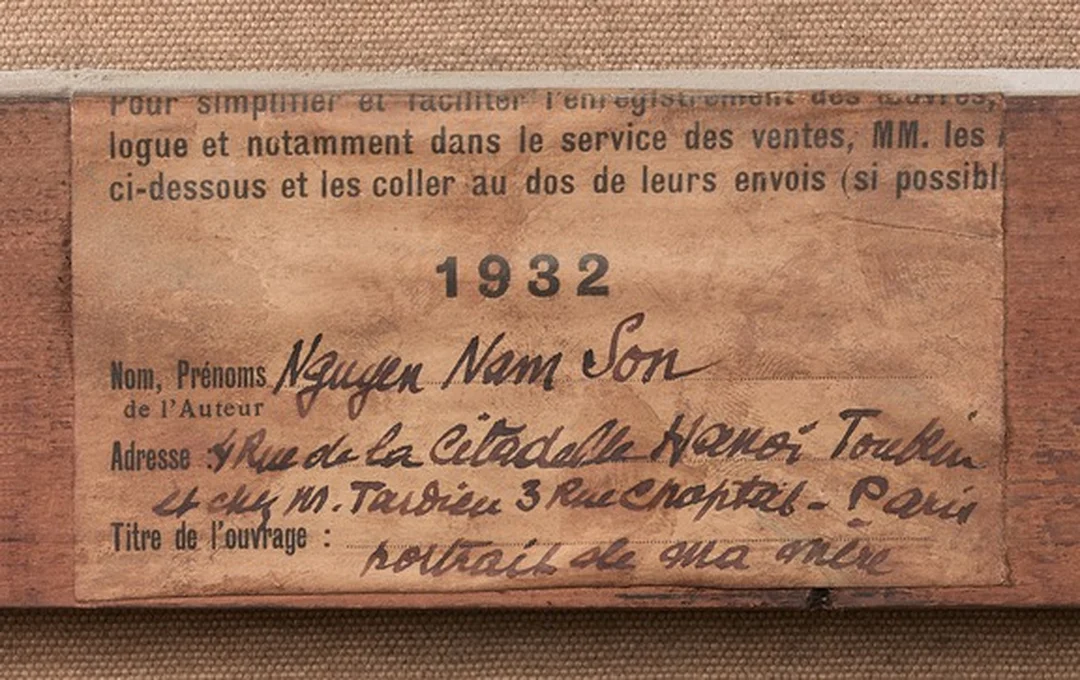 Pour simplifier et faciliter l'enregistrement des œuvres,
logue et notamment dans le service des ventes, MM. les
ci-dessous et les coller au dos de leurs envois (si possibl
1932
Nom, Prénoms Nguyen Nam Son
de l'Auteur
Adresse : 4 Rue de la Citadelle Hanoï Tonkin
et chez M. Tardieu 3 Rue Chaptal - Paris
Titre de l'ouvrage :
portrait de ma mère